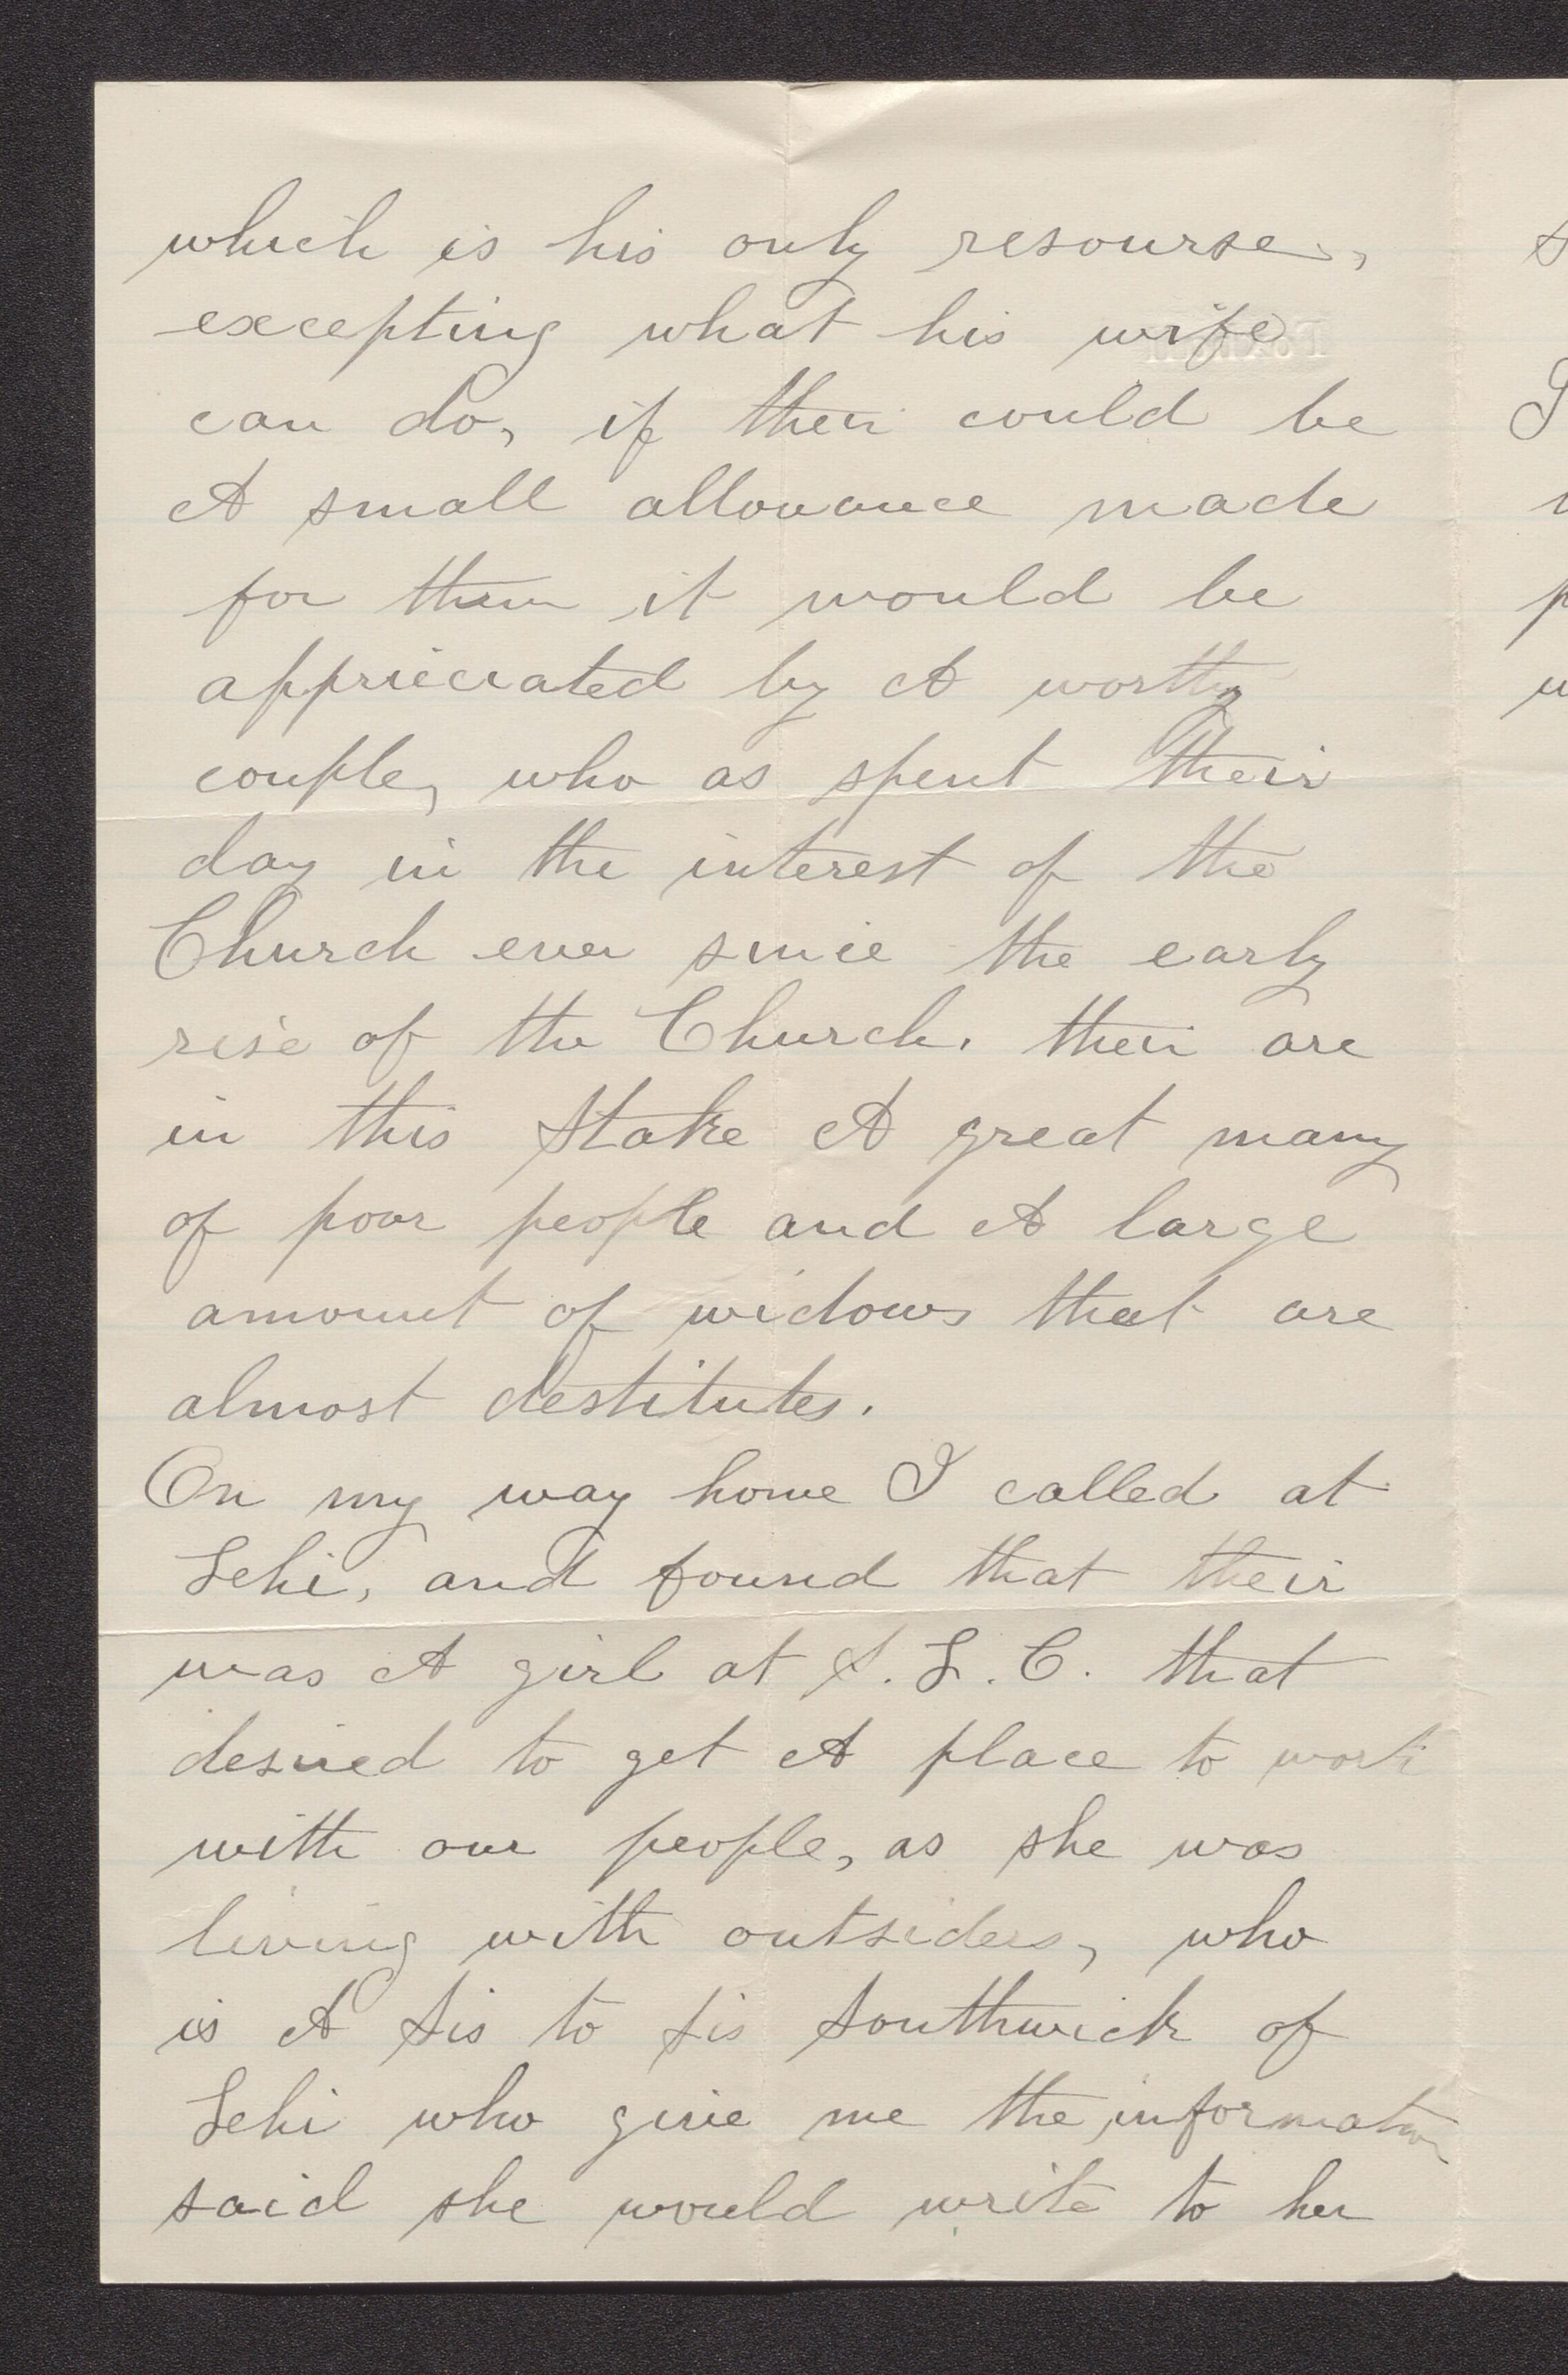 which is his only resourse,
excepting what his wife
can do, if their could be
A small allowance made
for them it would be
appriciated by A worthy
couple, who as spent their
day in the interest of the
Church ever since the early
rise of the Church. their are
in this Stake A great many
of poor people and A large
amount of widows that are
almost destitutes.
On my way home I called at
Lehi, and found that their
was A girl at S. L. C. that
desired to get A place to work
with our people, as she was
living with outsiders, who
is A Sis to Sis Southwick of
Lehi who give me the information
said she would write to her